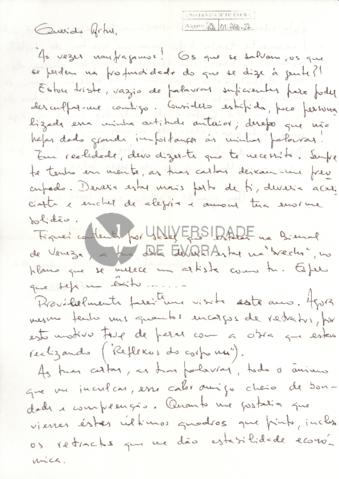 Querido Artur,
"Às vezes naufragamos! Os que se salvam, os que
se perdem na profundidade do que se dize à gente?!
Estou triste, vazio de palavras suficientes para poder
desculpar-me contigo. Considero estúpida, pouco persona
lizada essa minha actitude anterior, desejo que não
hajas dado grande importança às minhas palavras!
Em realidade, devo dizer-te que te necessito. Sempre
te tenho em mente, as tuas cartas deixam-me preo
cupado. Deveria estar mais perto de ti, deveria acari
ciar-te e encher de alegria e amor a tua enorme
solidão.
Fiquei contente por saber que estarás na Bienal
de Veneza, a tua obra deveria estar na
plano que se merece um artista como tu. Espero
que seja um êxito........
Provavelmente farei-te uma visita este ano. Agora
mesmo tenho uns quantos encargos de retratos, por
este motivo tive de parar com a obra que estou
realizando ("Reflexos do corpo nu").
As tuas cartas, as tuas palavras, todo o ânimo
que me inculcas, esse calor amigo cheio de bon-
dade e compreenção. Quanto me gostaria que
visses estes últimos quadros que pinto, incluso
os retractos que me dão estabilidade econó
mica.
UNIVERSIDADE
DE ÉVORA